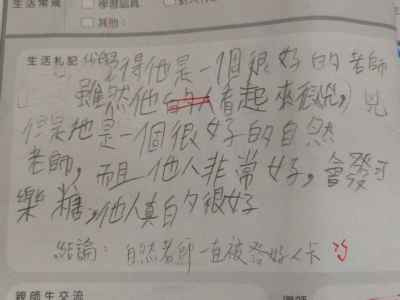 生活常規
學習認真
其他：
生活札記 你覺得他是一個很好的老師
雖然他的人看起來很兇，
但是他是一個很好的自然
老師，而且他人非常好，會發可
樂糖，他人真白勺很好
結論：自然老師一直被發好人卡
親師生交流
導師